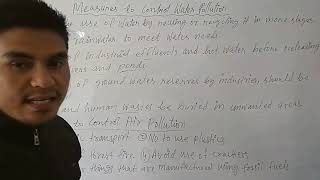 Measures to Control Water Pollution
use of water by reusing or recycling it in more stages
rainwater to meet water needs
industrial effluents and hot water before releasing
and ponds
of ground water reserves by industries should be
and human wastes be buried in unmanned areas
to Control Air Pollution
transport ② No to use plastics
forest fire Avoid use of crackers
things that are manufactured using fossil fuels